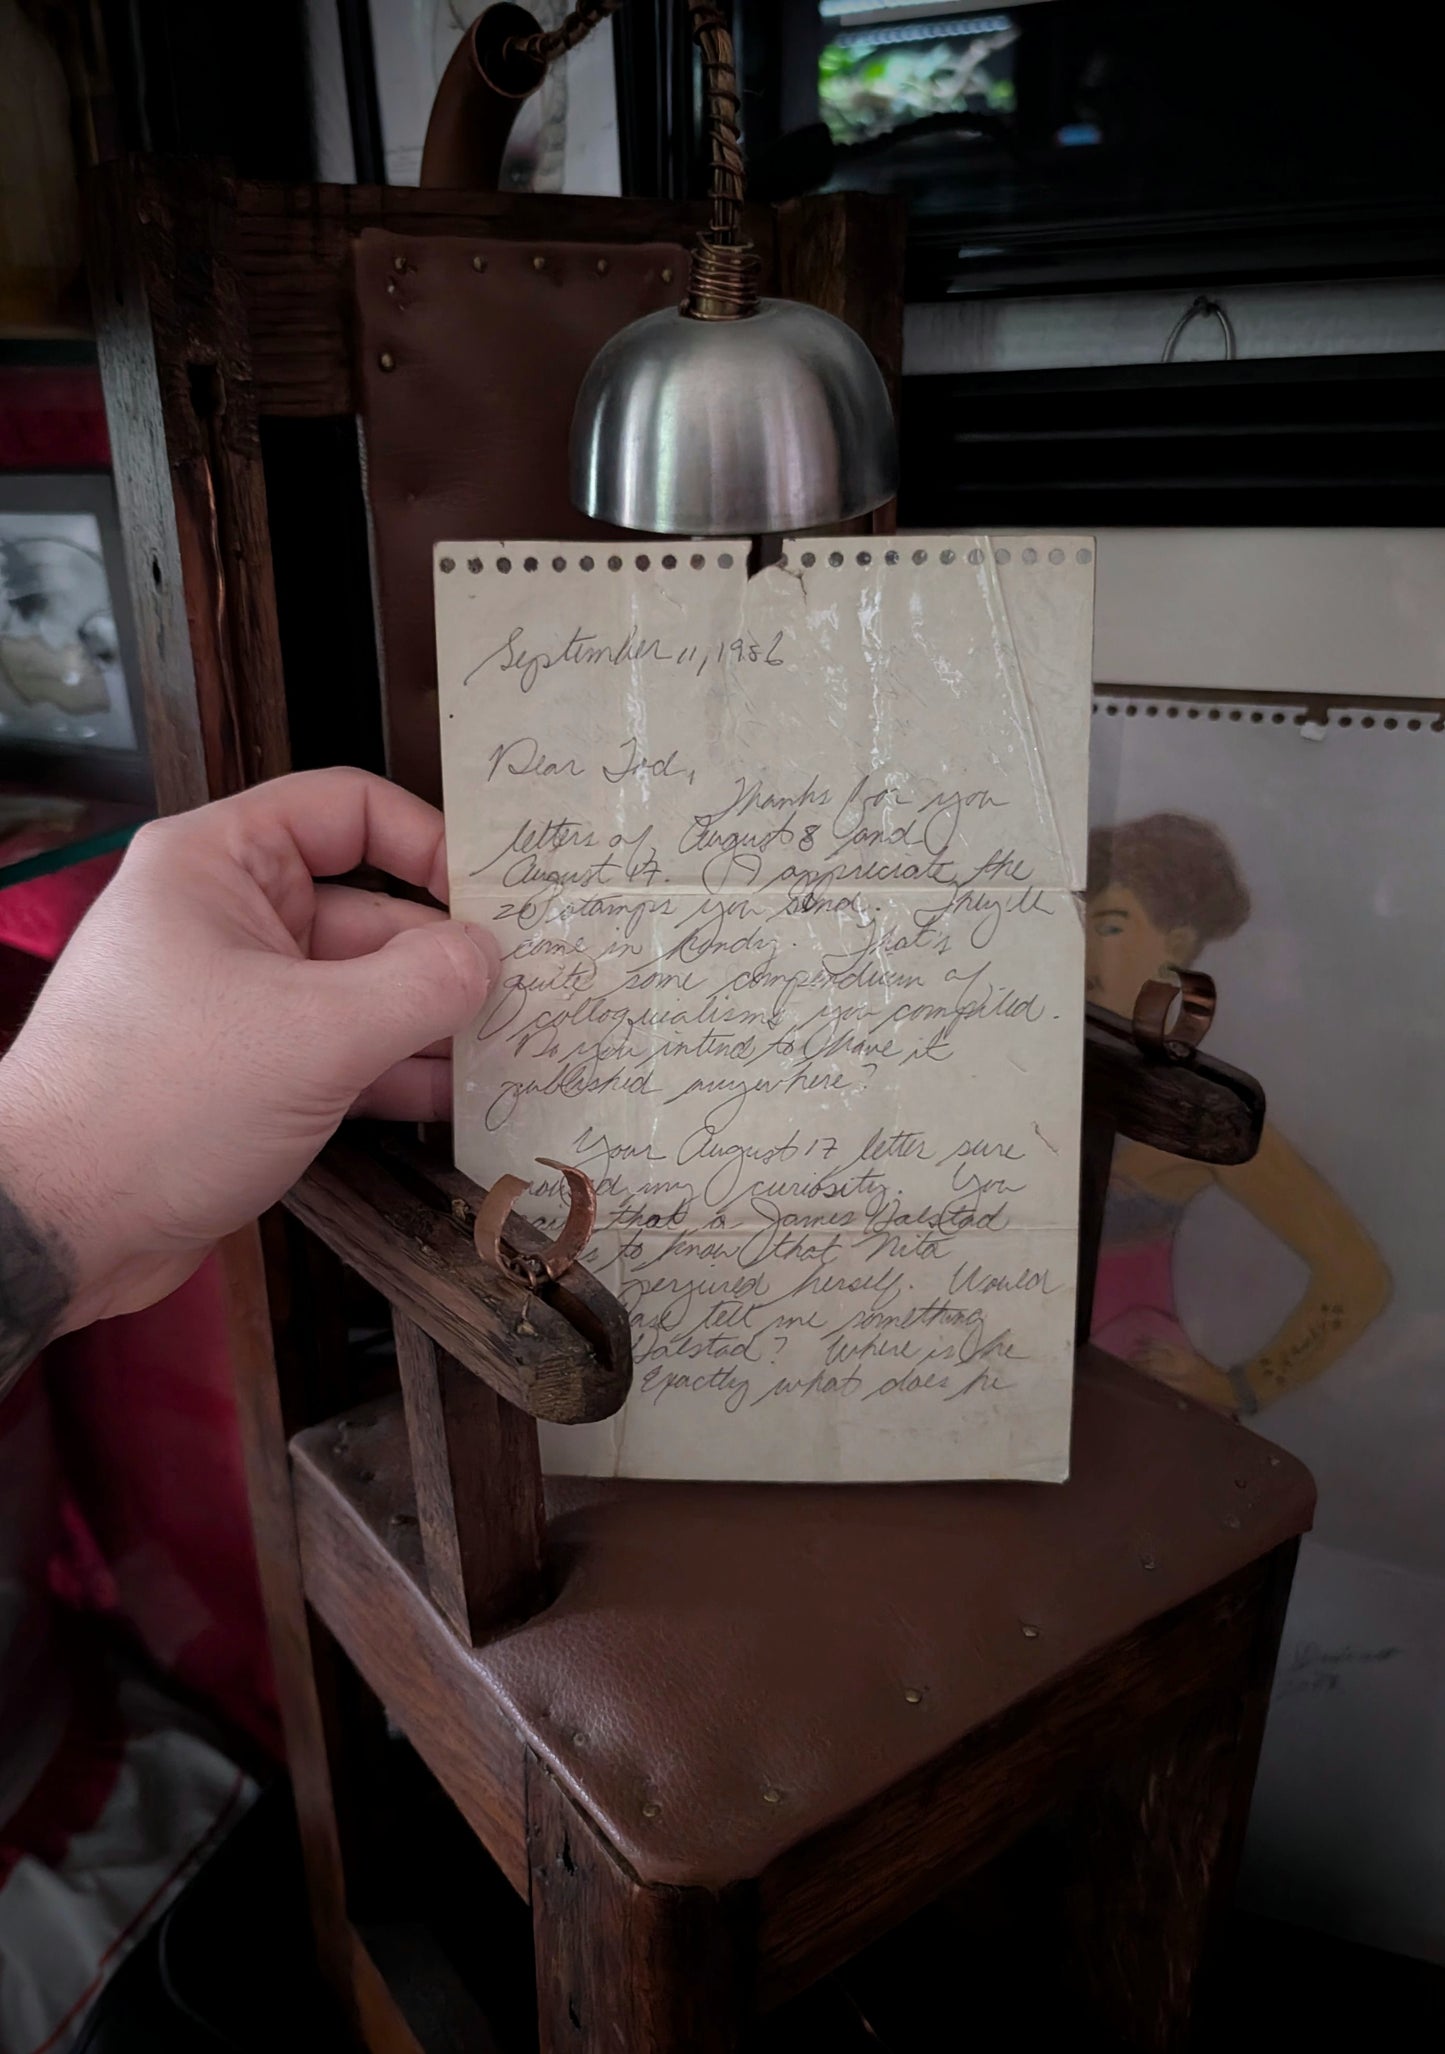 September 11, 1986
Dear Tod,
Thanks for you
letters of August 8 and
August 17. I appreciate the
20 stamps you send. They'll
come in handy. That's
quite some compendium of
colloquialisms you compiled.
Do you intend to have it
published anywhere?
Your August 17 letter sure
my curiosity. You
that a James Dalstad
to know that Nita
perjured herself. Would
tell me something
Dalstad? Where is he
Exactly what does he